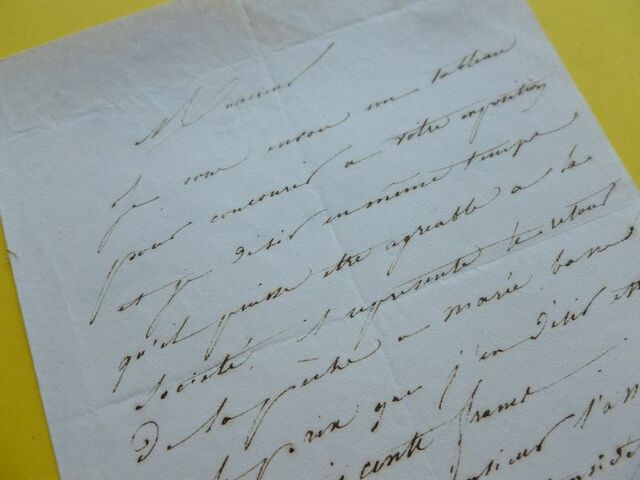 Monsieur
Je vous envoie un tableau
pour concourir à votre exposition
et je désir en même temps
qu'il puisse être agréable a la
société. il représente le retour
de la pêche a marée basse
le prix que j'en désir est
cents francs